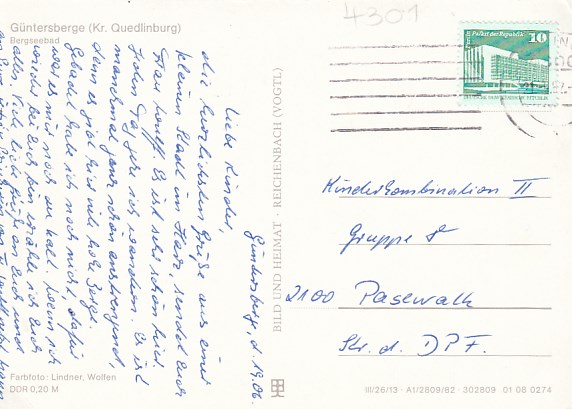 Güntersberge (Kr. Quedlinburg)
Bergseebad
4301
Palast der Republik 10
DEUTSCHE DEMOKRATISCHE REPUBLIK
Güntersberge, d. 19.06.
Liebe Kinder,
die herzlichsten Grüße aus einer
kleinen Stadt im Harz sendet Euch
Frau Es ist sehr schön hier.
Jeden Tag gehe ich wandern. Es ist
manchmal ganz schön anstrengend,
denn es gibt hier viele hohe Berge.
Gebadet habe ich noch nicht, dafür
war es mir noch zu kalt. Wenn ich
wieder bei Euch bin erzähle ich Euch
alles. Viele liebe Grüße an Euch und
BILD UND HEIMAT · REICHENBACH (VOGTL)
Kinderkombination II
Gruppe 8
2100 Pasewalk
Str. d. DPF.
Farbfoto: Lindner, Wolfen
DDR 0,20 M
III/26/13 · A1/2809/82 · 302809 01 08 0274